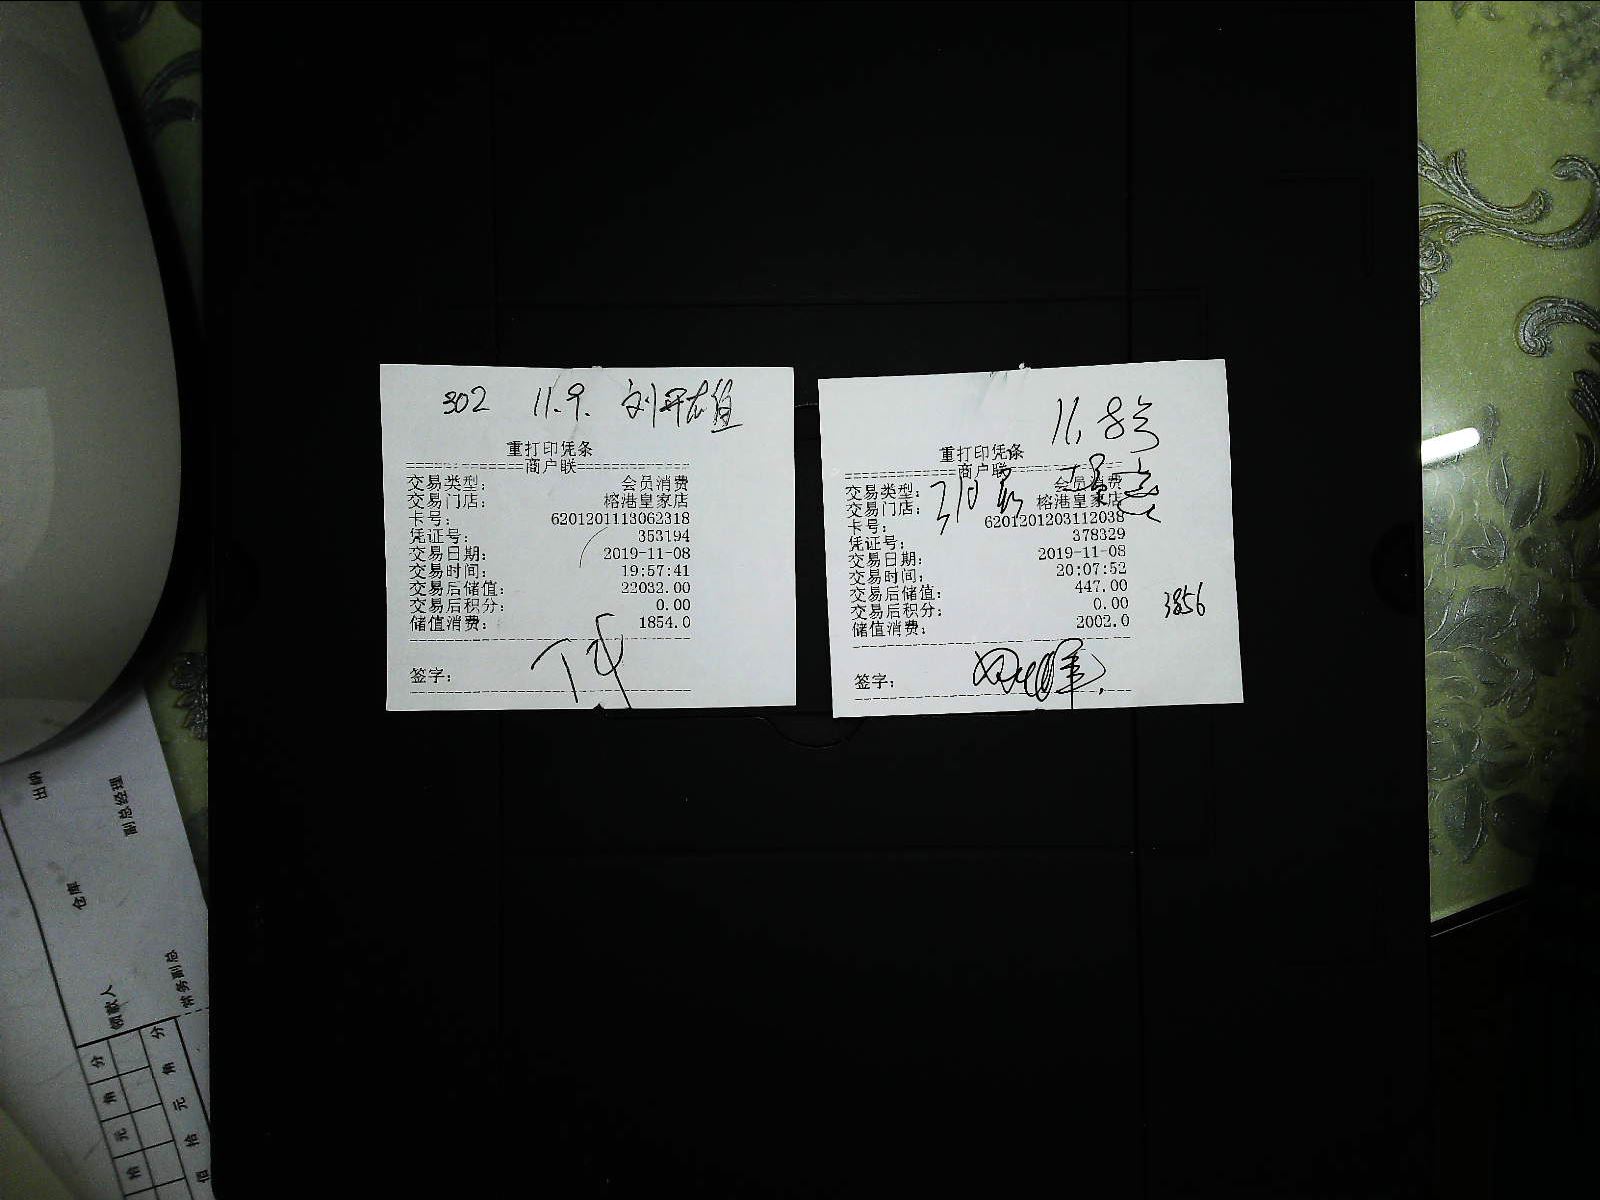 302 11.9.
重打印凭条
============商户联============
交易类型: 会员消费
交易门店: 榕港皇家店
卡号: 6201201113062318
凭证号: 353194
交易日期: 2019-11-08
交易时间: 19:57:41
交易后储值: 22032.00
交易后积分: 0.00
储值消费: 1854.0
签字:
11.8号
重打印凭条
============商户联============
交易类型: 会员消费
交易门店: 榕港皇家店
卡号: 6201201203112038
凭证号: 378329
交易日期: 2019-11-08
交易时间: 20:07:52
交易后储值: 447.00
交易后积分: 0.00
储值消费: 2002.0
3856
签字:
出纳
副总经理
仓库
领款人
常务副总
分
角
元
拾
分
角
元
拾
佰